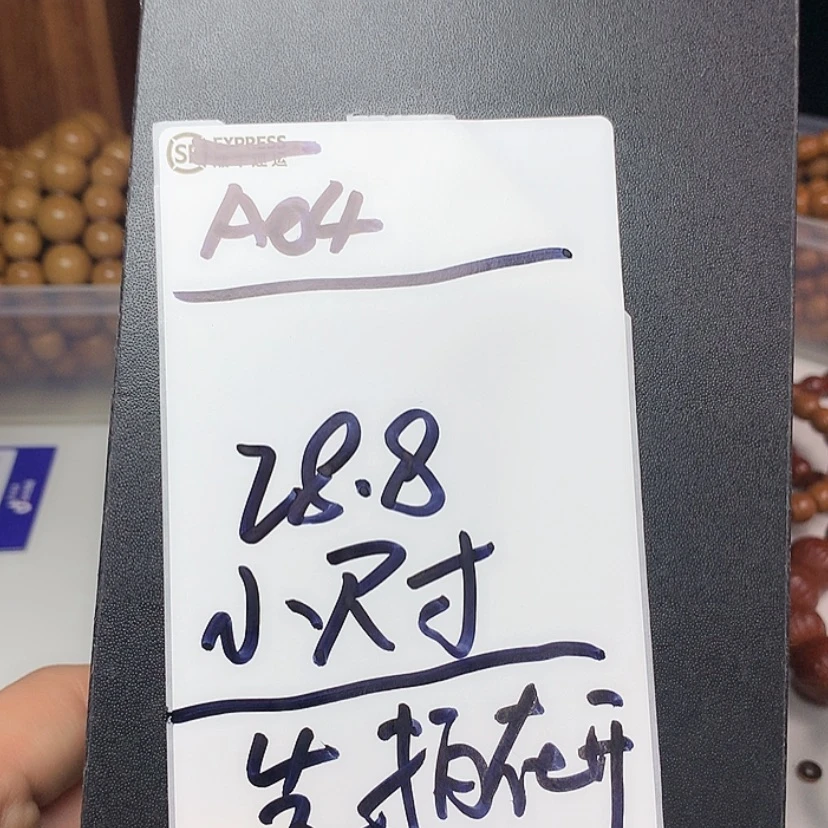 EXPRESS
A04
28.8
小尺寸
先拍在研